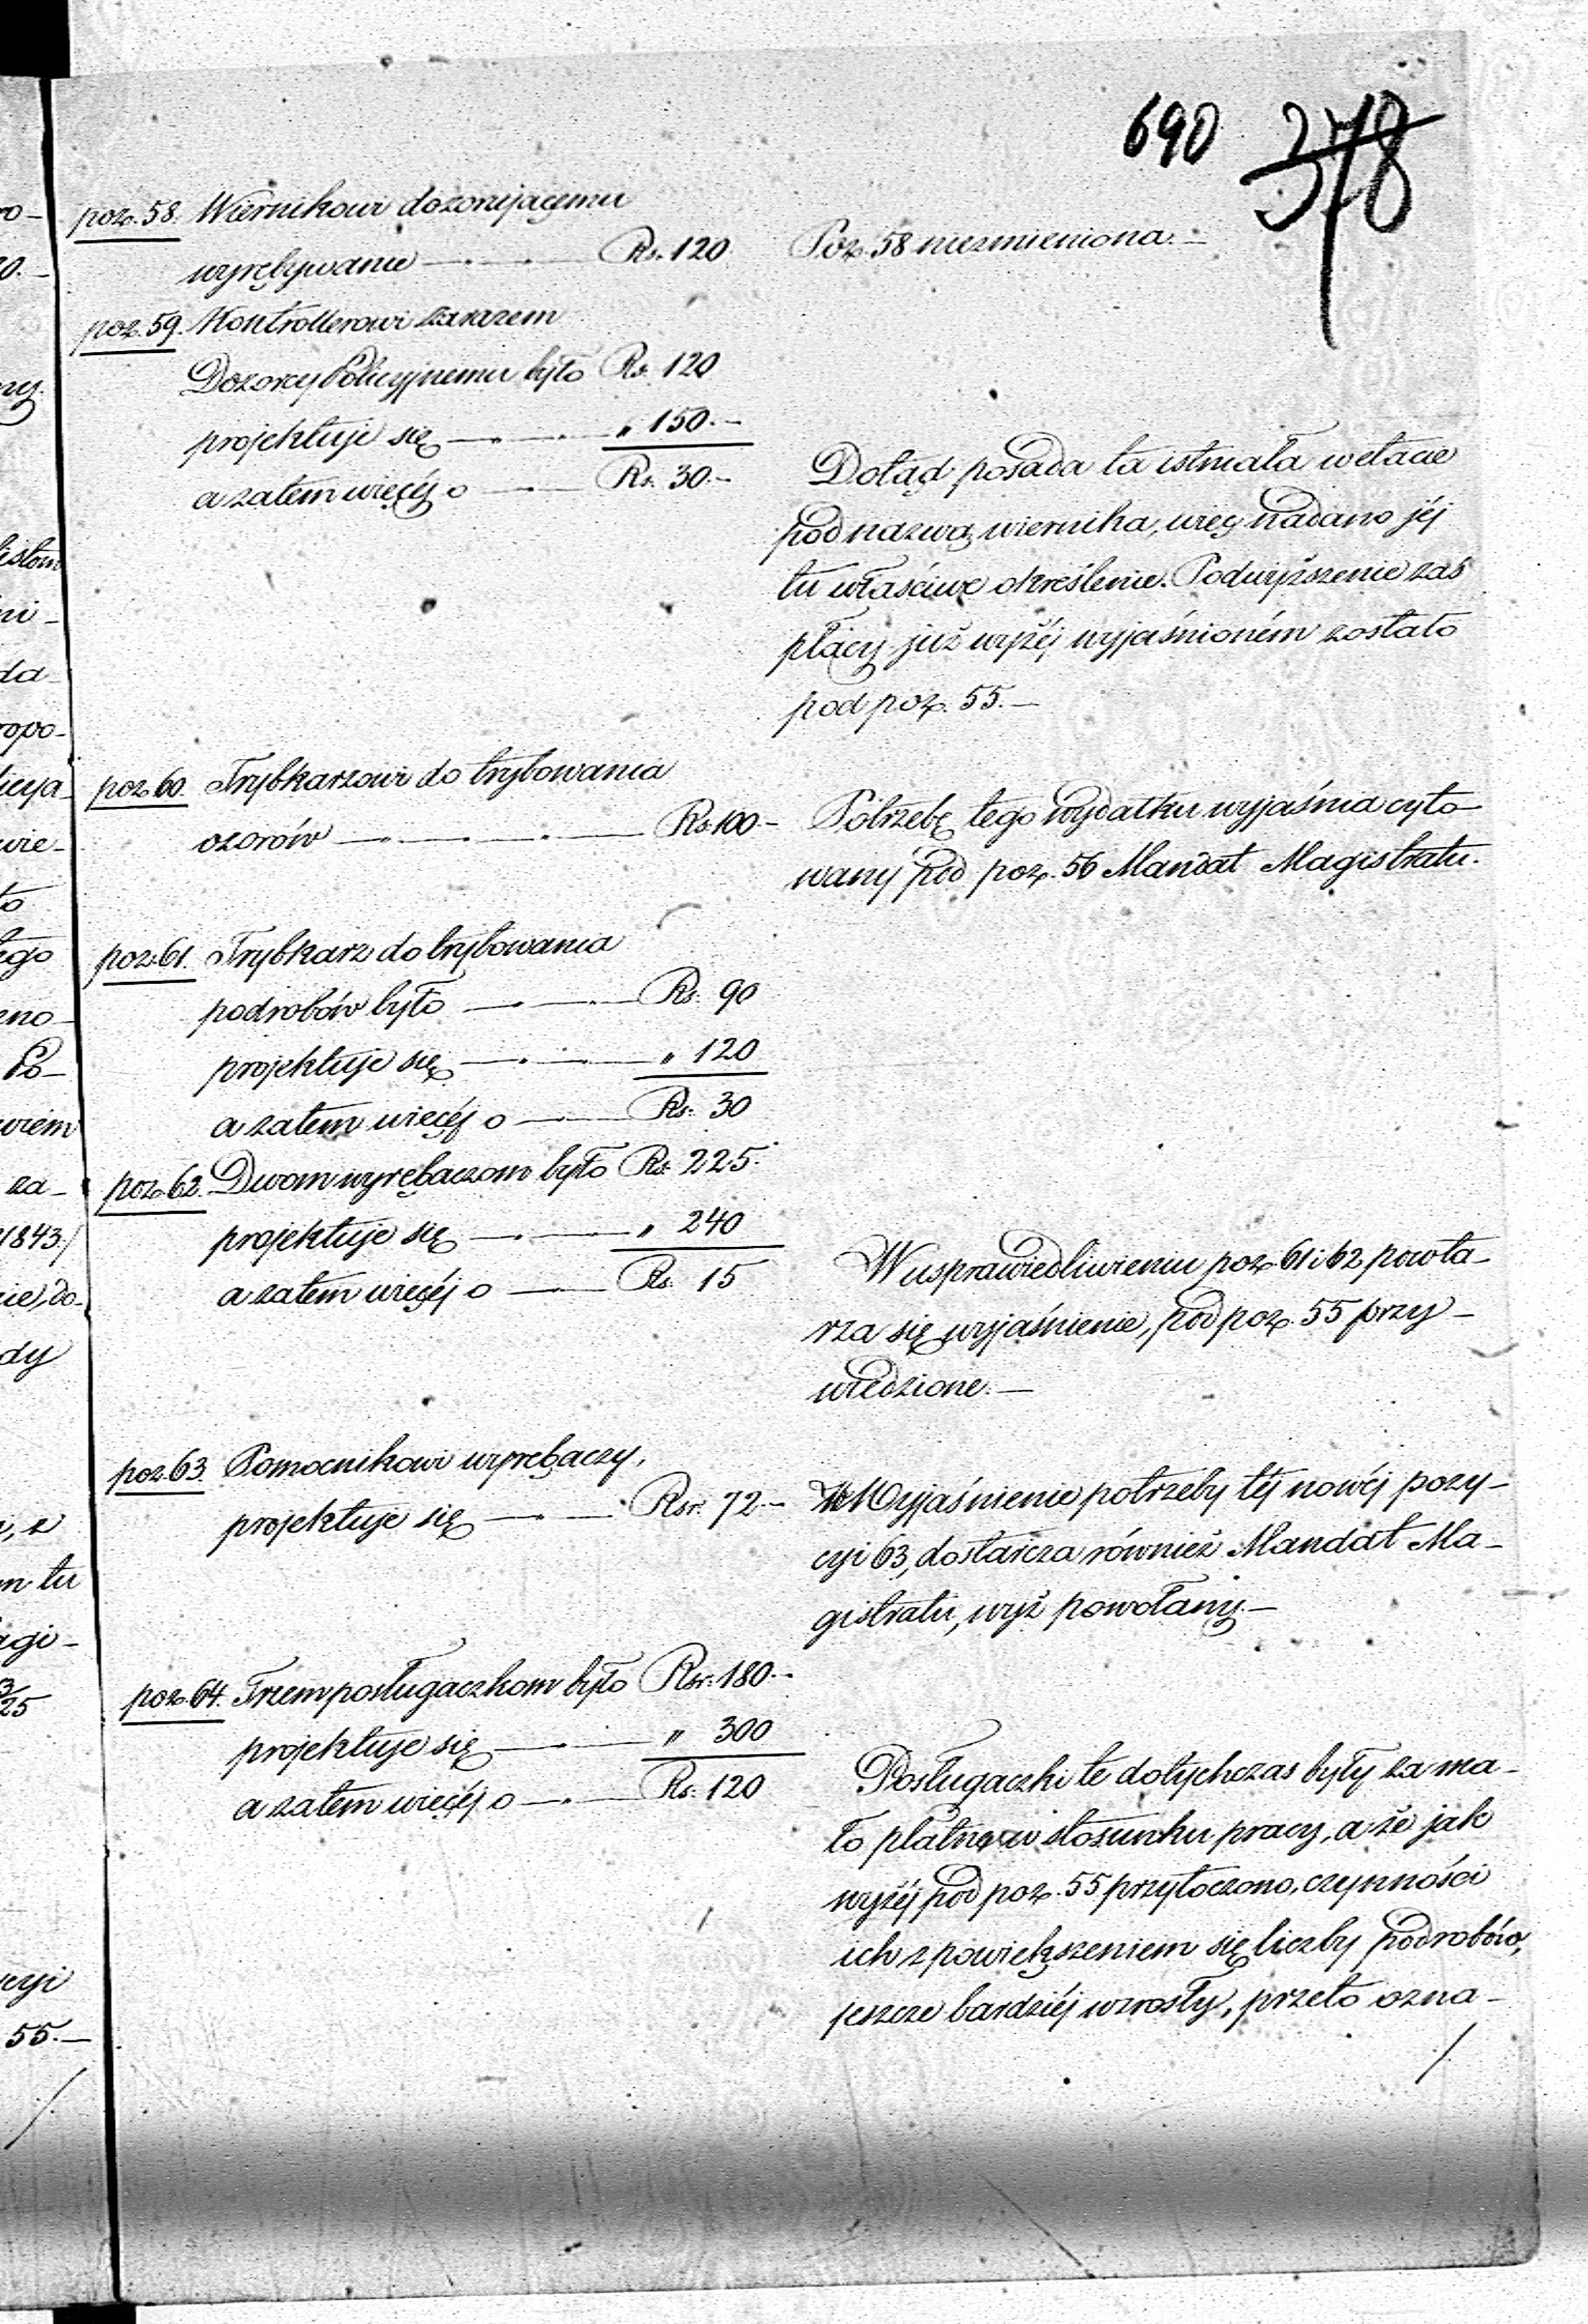 690 378
poz. 58. Wiernikowi dozorującemu
wyrębywanie — Rs. 120
Poz. 58 niezmieniona. —
poz. 59. Kontrollerowi zarazem
Dozorcy Policyjnemu było Rs. 120
projektuje się — „ 150. —
a zatem więcéj o — Rs. 30. —
Dotąd posada ta istniała w etacie
pod nazwą wiernika, więc nadano jéj
tu właściwe określenie. Podwyższenie zaś
płacy już wyżéj wyjaśnioném zostało
pod poz. 55. —
poz. 60. Trybkarzowi do trybowania
ozorów — Rs. 100 —
Potrzebę tego wydatku wyjaśnia cyto-
wany pod poz. 56 Mandat Magistratu.
poz. 61. Trybkarz do trybowania
podrobów było — Rs. 90
projektuje się — „ 120
a zatem więcéj o — Rs. 30
poz. 62. Dwom wyrębaczom było Rs. 225.
projektuje się — „ 240
a zatem więcéj o — Rs. 15
W usprawiedliwieniu poz. 61 i 62 powta-
rza się wyjaśnienie, pod poz. 55 przy-
wiedzione. —
poz. 63. Pomocnikowi wyrębaczy,
projektuje się — Rsr. 72 —
Wyjaśnienie potrzeby téj nowéj pozy-
cyi 63, dostarcza również Mandat Ma-
gistratu, wyż powołany. —
poz. 64. Trzem posługaczkom było Rsr. 180. —
projektuje się — „ 300
a zatem więcéj o — Rs. 120
Posługaczki te dotychczas były za ma-
ło płatne w stosunku pracy, a że jak
wyżéj pod poz. 55 przytoczono, czynności
ich z powiększeniem się liczby podrobów,
jeszcze bardziéj wzrosły, przeto ozna-
/.